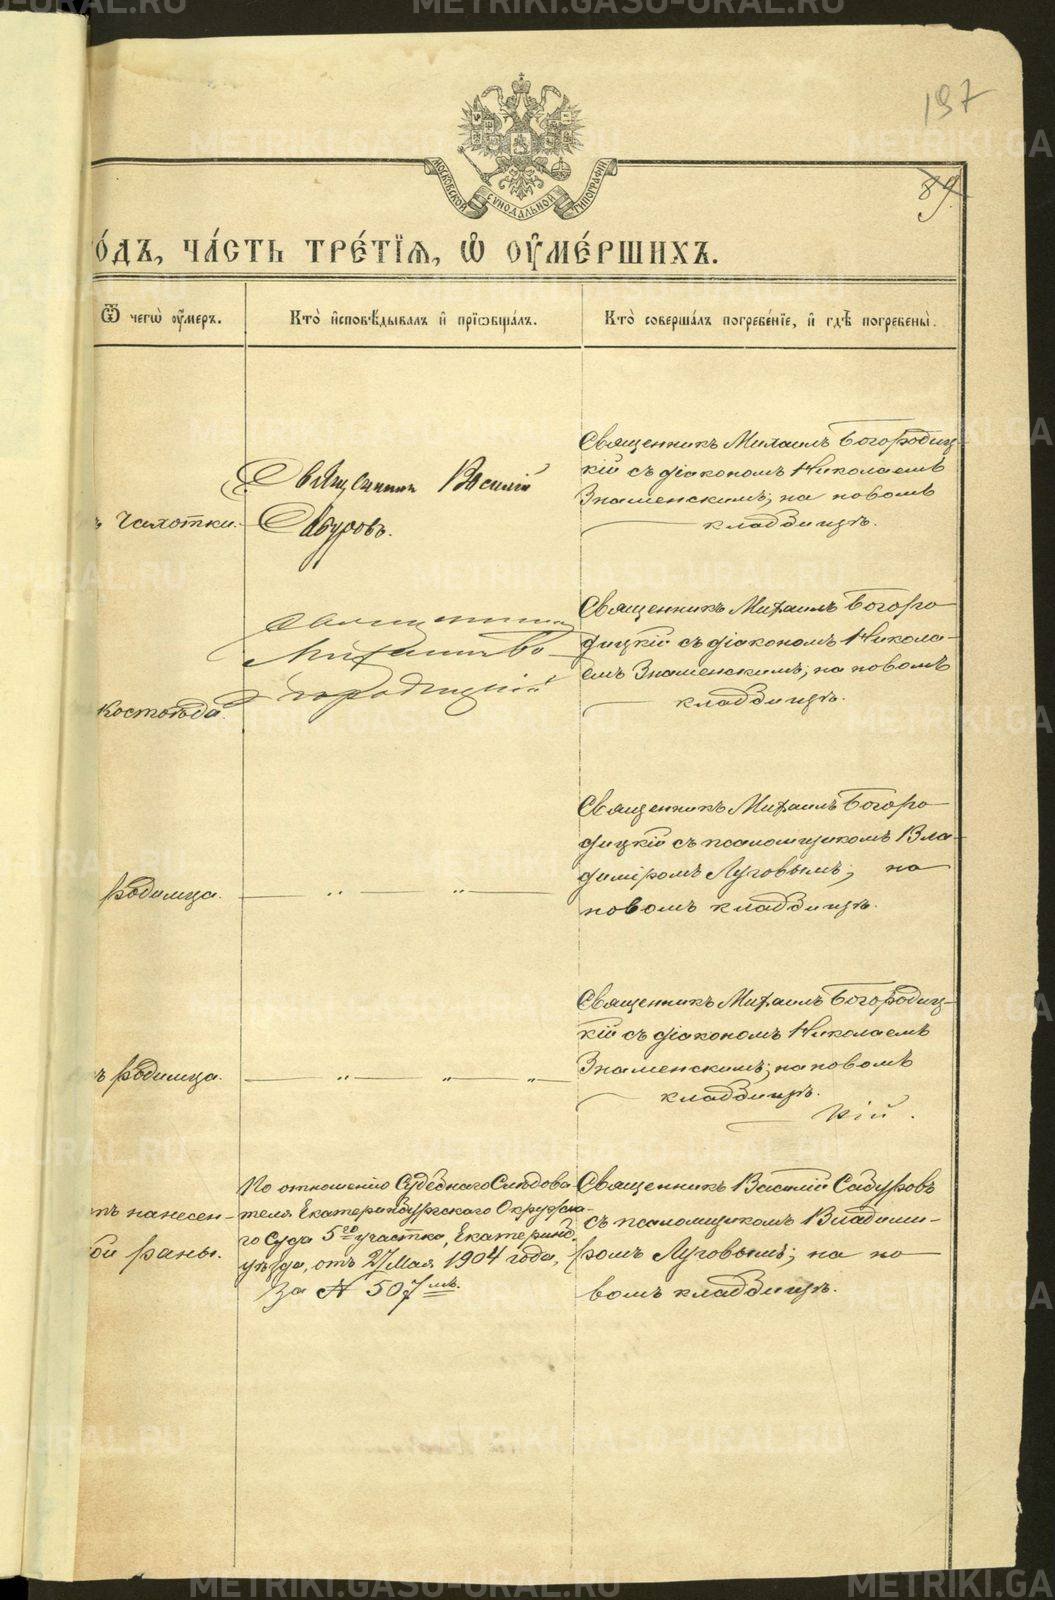 197
89.
МОСКОВСКОЙ СѴНОДАЛЬНОЙ ТИПОГРАФІИ
го́дъ, ча́сть тре́тїѧ, ѡ҆ ᲂу҆ме́ршихъ.
Ѿ чегѡ̀ ᲂу҆́меръ.
Кто̀ и҆сповѣ́дывалъ и҆ прїѡбща́лъ.
Кто̀ соверша́лъ погребе́нїе, и҆ гдѣ̀ погребены̀.
ъ Чахотки.
Священникъ Василій
Сабуровъ.
Священникъ Михаилъ Богородиц-
кій съ діакономъ Николаемъ
Знаменскимъ; на новомъ
кладбищѣ.
Костоѣда.
Священникъ
Михаилъ Бо-
городицкій
Священникъ Михаилъ Богоро-
дицкій съ діакономъ Никола-
емъ Знаменскимъ; на новомъ
кладбищѣ.
Родимца.
— „ — „ —
Священникъ Михаилъ Богоро-
дицкій съ псаломщикомъ Вла-
диміромъ Луговымъ; на
новомъ кладбищѣ.
ъ Родимца.
— „ — „ — „ —
Священникъ Михаилъ Богородиц-
кій съ діакономъ Николаемъ
Знаменскимъ; на новомъ
кладбищѣ.
кій.
тъ нанесен-
ой раны.
По отношенію Судебнаго Слѣдова-
теля Екатеринбургскаго Окружна-
го Суда 5го участка, Екатеринб.
уѣзда, отъ 27 Мая 1904 года,
За № 507мъ.
Священникъ Василій Сабуровъ
съ псаломщикомъ Владими-
ромъ Луговымъ; на но-
вомъ кладбищѣ.
METRIKI.GASO-URAL.RU